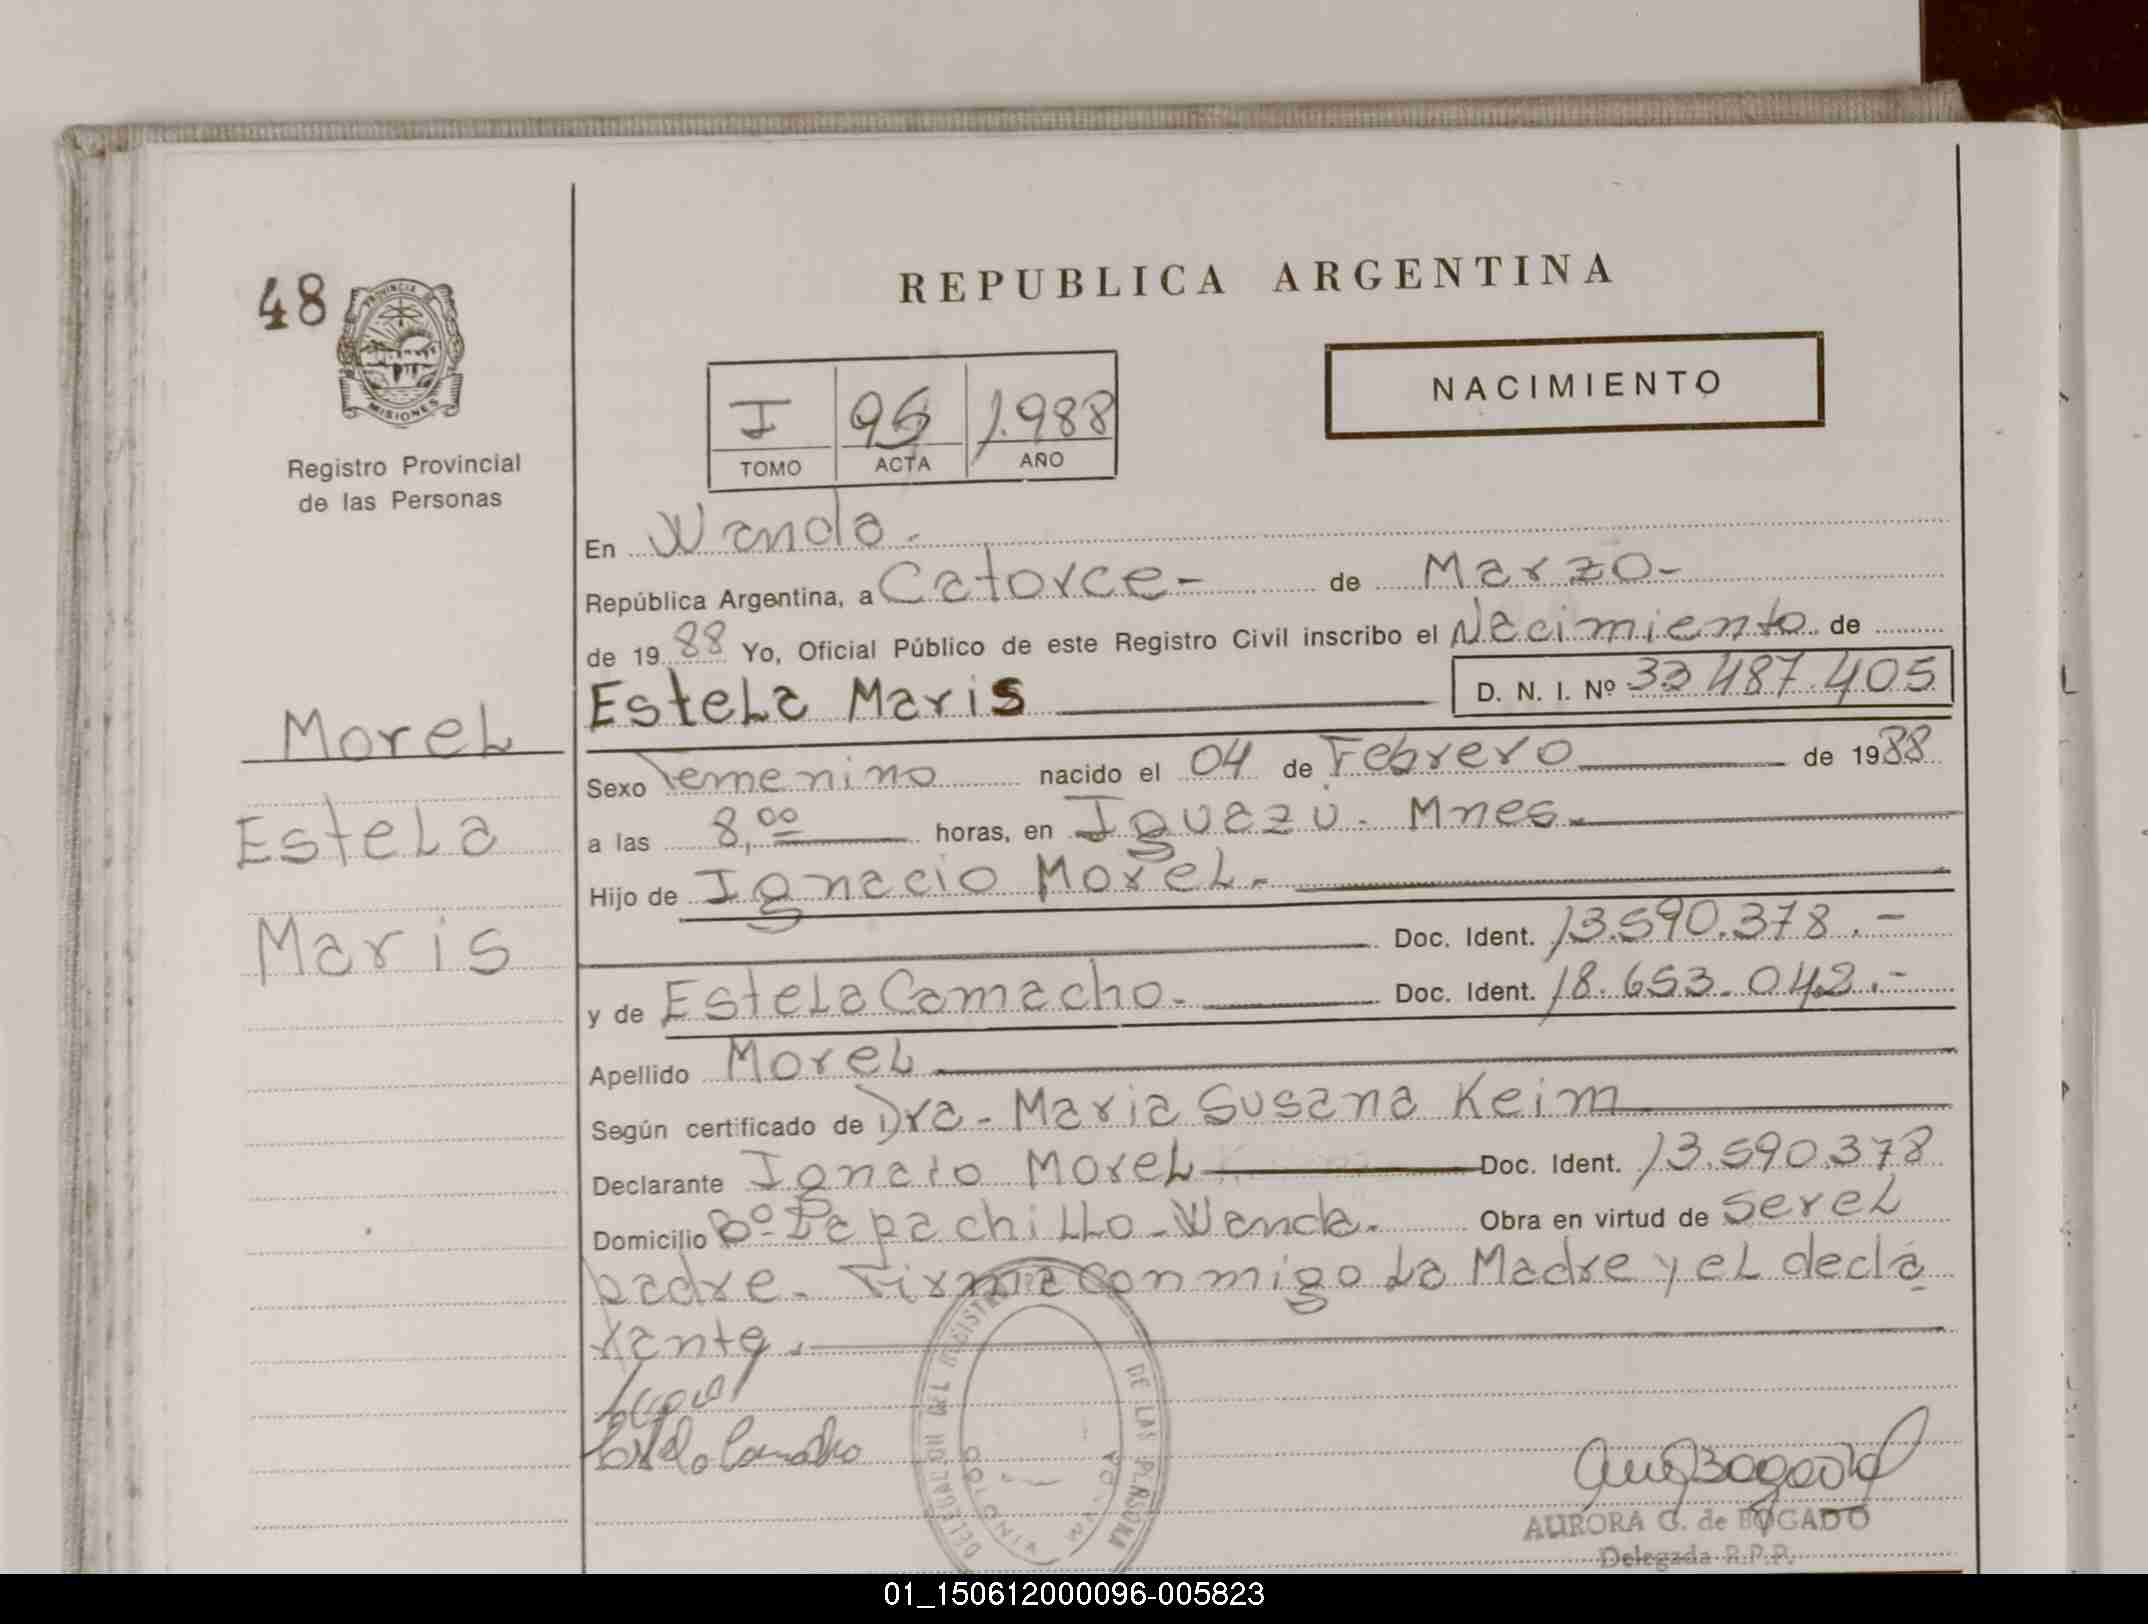 REPUBLICA ARGENTINA
48
PROVINCIA DE
MISIONES
NACIMIENTO
I 95 1.988
TOMO ACTA AÑO
Registro Provincial
de las Personas
En Wanda.
República Argentina, a Catorce - de Marzo -
de 19 88 Yo, Oficial Público de este Registro Civil inscribo el Nacimiento de
Estela Maris D. N. I. Nº 33 487.405
Morel
Estela
Maris
Sexo Femenino nacido el 04 de Febrero de 19 88
a las 8,00 horas, en Iguazú. Mnes.
Hijo de Ignacio Morel.-
Doc. Ident. 13.590.378.-
y de Estela Camacho.- Doc. Ident. 18.653.042.-
Apellido Morel
Según certificado de Dra - Maria Susana Keim
Declarante Ignacio Morel Doc. Ident. 13.590.378
Domicilio Bº Papachillo - Wanda. Obra en virtud de ser el
padre. Firma conmigo La Madre y el decla
rante.
Estela Camacho
DELEGACION DEL REGISTRO DE LAS PERSONAS
COLONIA WANDA
AURORA G. de BOGADO
Delegada R.P.P.
01_150612000096-005823